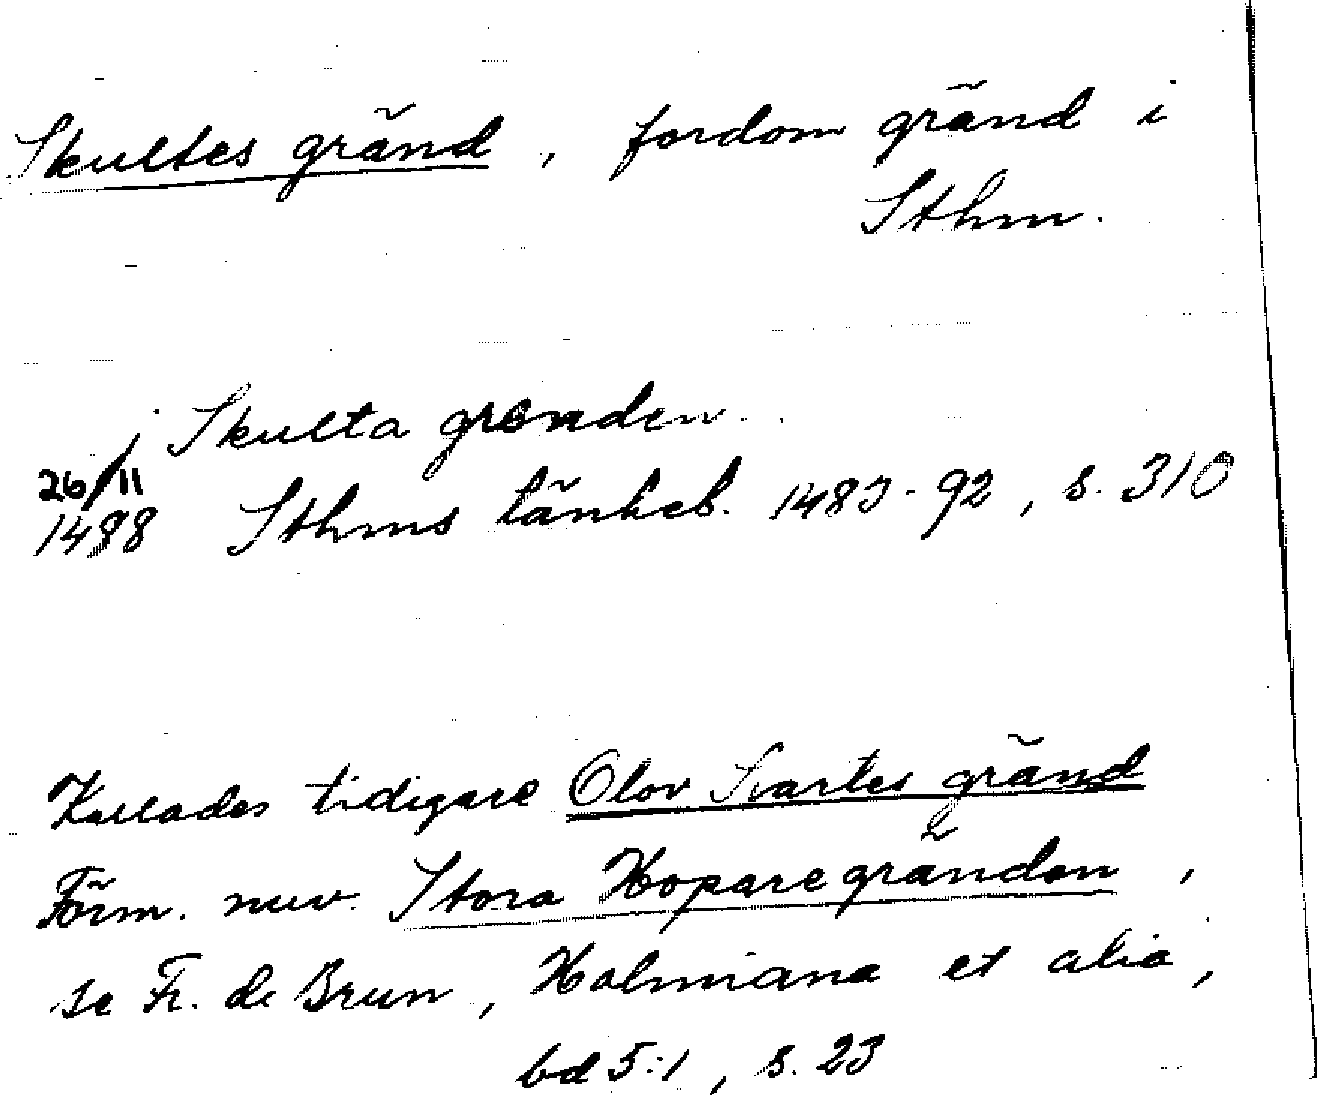 Skultes gränd, fordom gränd i
Sthm.
j Skulta grenden
26/11
1488 Sthms tänkeb. 1483-92, s. 310
Kallades tidigare Olov Svartes gränd
Förm. nuv. Stora Hoparegränden,
se Fr. de Brun, Holmiana et alia,
bd 5:1, s. 23